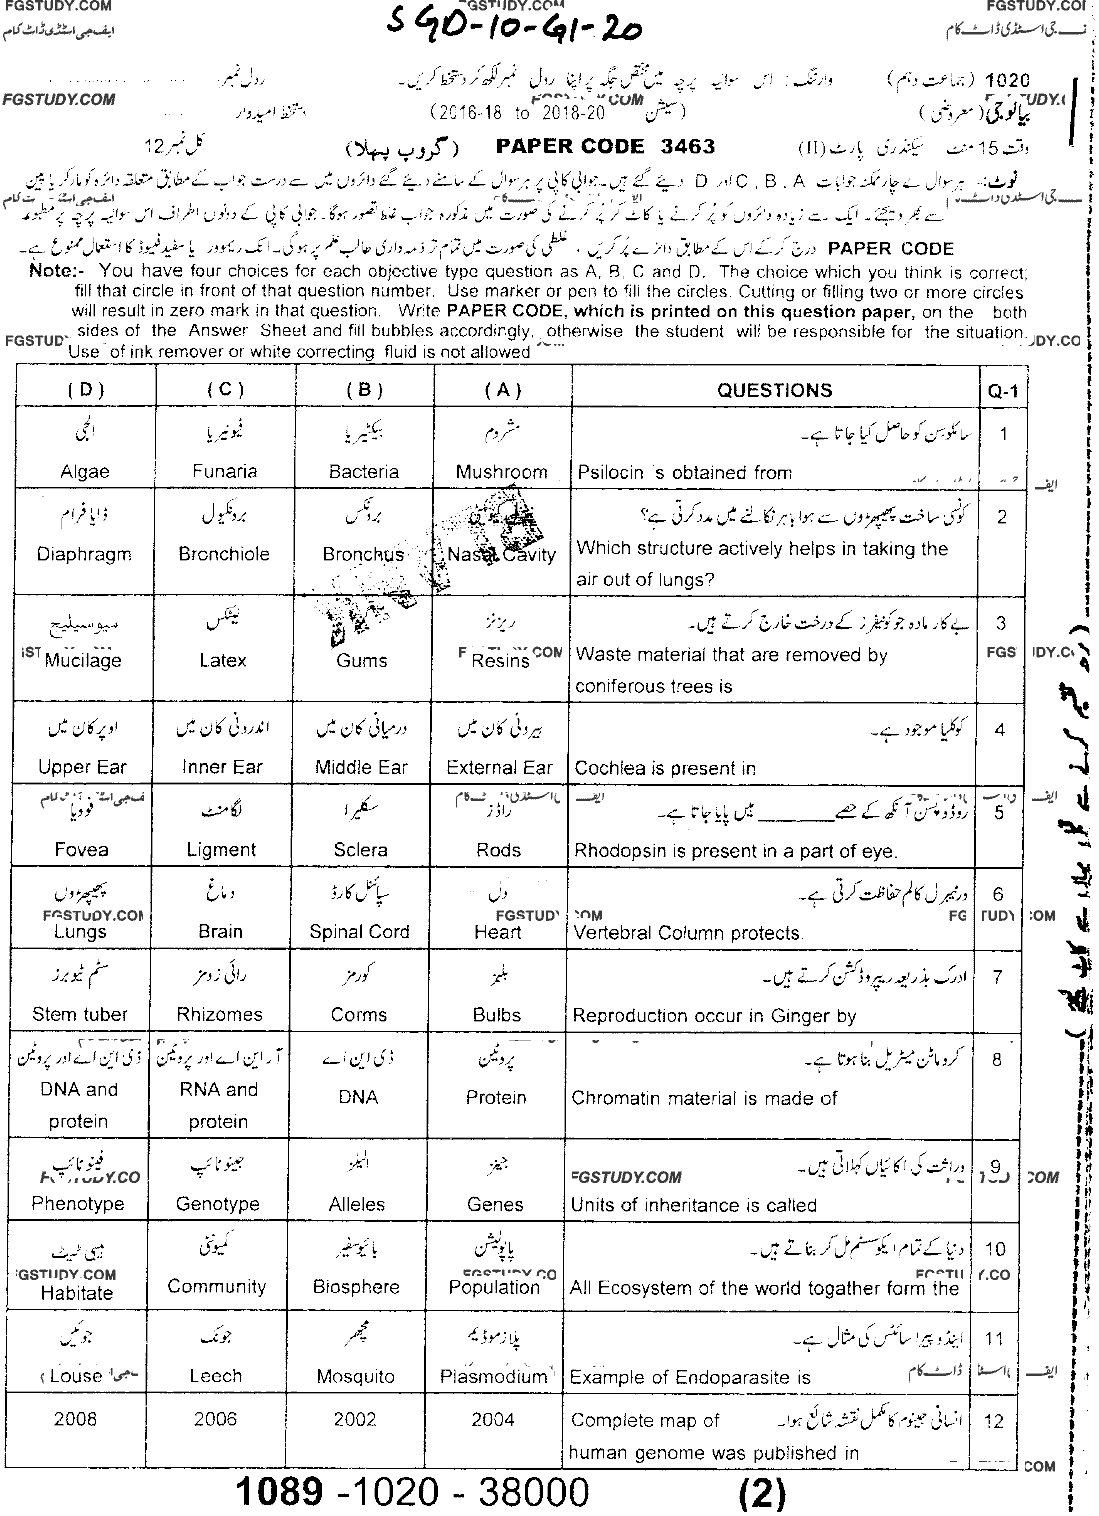 FGSTUDY.COM FGSTUDY.COM FGSTUDY.CO
SGD-10-G1-20
ایف جی اسٹڈی ڈاٹ کام
1020 (جماعت دہم) وارننگ: اس سوالیہ پرچہ میں مختص جگہ پر اپنا رول نمبر لکھ کر دستخط کریں۔ رول نمبر:
بیالوجی (معروضی) سیشن (2016-18 to 2018-20) دستخط امیدوار
FGSTUDY.COM
وقت 15 منٹ سیکنڈری پارٹ (II) PAPER CODE 3463 (گروپ پہلا) کل نمبر 12
نوٹ:۔ ہر سوال کے چار ممکنہ جوابات A ، B ، C اور D دیئے گئے ہیں۔ جوابی کاپی پر ہر سوال کے سامنے دیئے گئے دائروں میں سے درست جواب کے مطابق متعلقہ دائرہ کو مارکر یا پین
سے بھر دیجئے۔ ایک سے زیادہ دائروں کو پُر کرنے یا کاٹ کر پُر کرنے کی صورت میں مذکورہ جواب غلط تصور ہوگا۔ جوابی کاپی کے دونوں اطراف اس سوالیہ پرچہ پر مطبوعہ
PAPER CODE درج کرکے اس کے مطابق دائرے پُر کریں، غلطی کی صورت میں تمام تر ذمہ داری طالب علم پر ہوگی۔ انک ریموور یا سفید فلیوڈ کا استعمال ممنوع ہے۔
Note:- You have four choices for each objective type question as A, B, C and D. The choice which you think is correct;
fill that circle in front of that question number. Use marker or pen to fill the circles. Cutting or filling two or more circles
will result in zero mark in that question. Write PAPER CODE, which is printed on this question paper, on the both
sides of the Answer Sheet and fill bubbles accordingly, otherwise the student will be responsible for the situation.
Use of ink remover or white correcting fluid is not allowed
(D) (C) (B) (A) QUESTIONS Q-1
الجی فیونیریا بیکٹیریا مشروم سائلوسن کو حاصل کیا جاتا ہے۔ 1
Algae Funaria Bacteria Mushroom Psilocin is obtained from
ڈایا فرام برونکیول برونکس کونسی ساخت پھیپھڑوں سے ہوا باہر نکالنے میں مدد کرتی ہے؟ 2
Diaphragm Bronchiole Bronchus Nasal Cavity Which structure actively helps in taking the
air out of lungs?
میوسیلیج لیٹکس ریزنز بے کار مادہ جو کونیفرز کے درخت خارج کرتے ہیں۔ 3
Mucilage Latex Gums Resins Waste material that are removed by
coniferous trees is
اوپر کان میں اندرونی کان میں درمیانی کان میں بیرونی کان میں کوکلیا موجود ہے۔ 4
Upper Ear Inner Ear Middle Ear External Ear Cochlea is present in
فوویا لگامنٹ سکلیرا راڈز روڈوپسن آنکھ کے حصے ________ میں پایا جاتا ہے۔ 5
Fovea Ligment Sclera Rods Rhodopsin is present in a part of eye.
پھیپھڑوں دماغ سپائنل کارڈ دل ورٹیبرل کالم حفاظت کرتی ہے۔ 6
Lungs Brain Spinal Cord Heart Vertebral Column protects.
سٹم ٹیوبرز رائی زومز کورمز بلبز ادرک بذریعہ ریپروڈکشن کرتے ہیں۔ 7
Stem tuber Rhizomes Corms Bulbs Reproduction occur in Ginger by
ڈی این اے اور پروٹین آر این اے اور پروٹین ڈی این اے پروٹین کروماٹن میٹریل بنا ہوتا ہے۔ 8
DNA and protein RNA and protein DNA Protein Chromatin material is made of
فینوٹائپ جینوٹائپ الیلز جینز وراثت کی اکائیاں کہلاتی ہیں۔ 9
Phenotype Genotype Alleles Genes Units of inheritance is called
ہیبی ٹیٹ کمیونٹی بائیوسفیر پاپولیشن دنیا کے تمام ایکوسسٹم مل کر بناتے ہیں۔ 10
Habitate Community Biosphere Population All Ecosystem of the world togather form the
جوئیں جونک مچھر پلازموڈیم اینڈوپیراسائٹس کی مثال ہے۔ 11
Louse Leech Mosquito Plasmodium Example of Endoparasite is
2008 2006 2002 2004 Complete map of انسانی جینوم کا مکمل نقشہ شائع ہوا۔ 12
human genome was published in
1089 -1020 - 38000 (2)